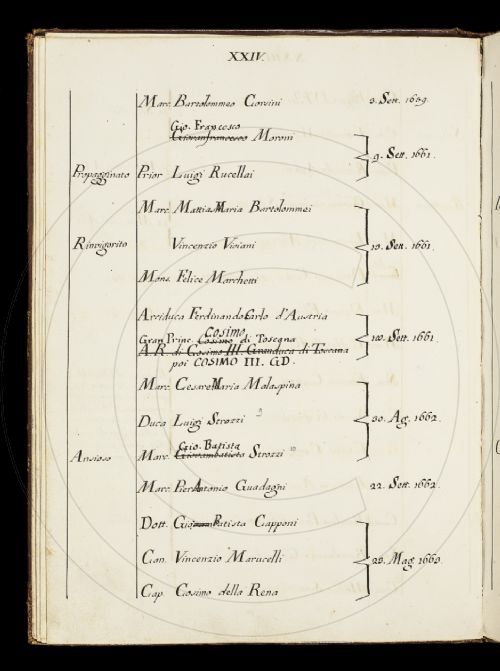 XXIV.
Marc. Bartolommeo Corsini 3. Sett. 1659.
Gio. Francesco
Giovanfrancesco Moroni
9. Sett. 1661.
Propagginato Prior Luigi Rucellai
Marc. Mattias Maria Bartolommei
Rinvigorito Vincenzio Viviani Sett. 1661.
Mons. Felice Marchetti
Arciduca Ferdinando Carlo d'Austria
COSIMO
Gran Princ. Cosimo di Toscana Sett. 1661.
A.R. di Cosimo III. Granduca di Toscana
poi COSIMO III. GD.
Marc. Cesare Maria Malaspina
Duca Luigi Strozzi 30. Ag. 1662.
Gio. Batista
Ansioso Marc. Giovambatista Strozzi
Marc. Pier Antonio Guadagni 22. Sett. 1662.
Dott. Batista Capponi
Can. Vincenzio Marucelli Mag. 1663.
Cap. Cosimo della Rena